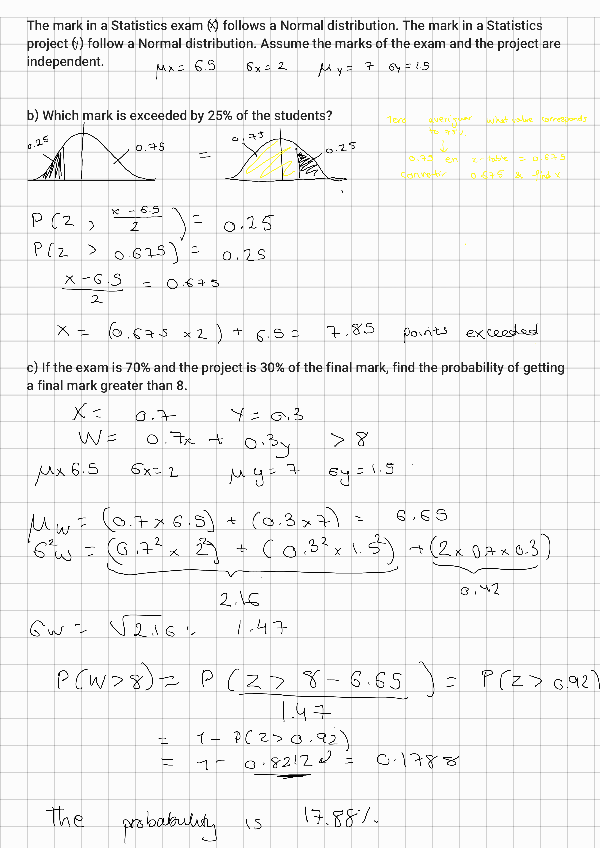 The mark in a Statistics exam (X) follows a Normal distribution. The mark in a Statistics
project (Y) follow a Normal distribution. Assume the marks of the exam and the project are
independent.
μx = 6.5 σx = 2 μy = 7 σy = 1.5
b) Which mark is exceeded by 25% of the students?
0.25 0.75 = 0.75 0.25
what value corresponds
to 75%
0.75 z-table = 0.675
0.675
P(Z > x - 6.5 / 2) = 0.25
P(Z > 0.675) = 0.25
x - 6.5 / 2 = 0.675
x = (0.675 x 2) + 6.5 = 7.85 points exceeded
c) If the exam is 70% and the project is 30% of the final mark, find the probability of getting
a final mark greater than 8.
X = 0.7 Y = 0.3
W = 0.7x + 0.3y > 8
μx 6.5 σx = 2 μy = 7 σy = 1.5
μw = (0.7 x 6.5) + (0.3 x 7) = 6.65
σ²w = (0.7² x 2²) + (0.3² x 1.5²) + (2 x 0.7 x 0.3)
2.16 0.42
σw = √2.16 = 1.47
P(W > 8) = P(Z > 8 - 6.65 / 1.47) = P(Z > 0.92)
= 1 - P(Z > 0.92)
= 1 - 0.8212 = 0.1788
The probability is 17.88%.